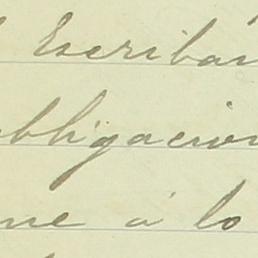 Escriban
obligacion
ne á lo